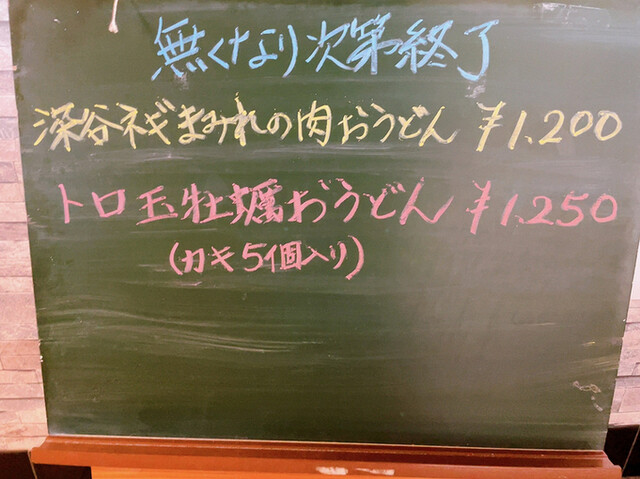 無くなり次第終了
深谷ネギまみれの肉おうどん ¥1,200
トロ玉牡蠣おうどん ¥1,250
(カキ5個入り)